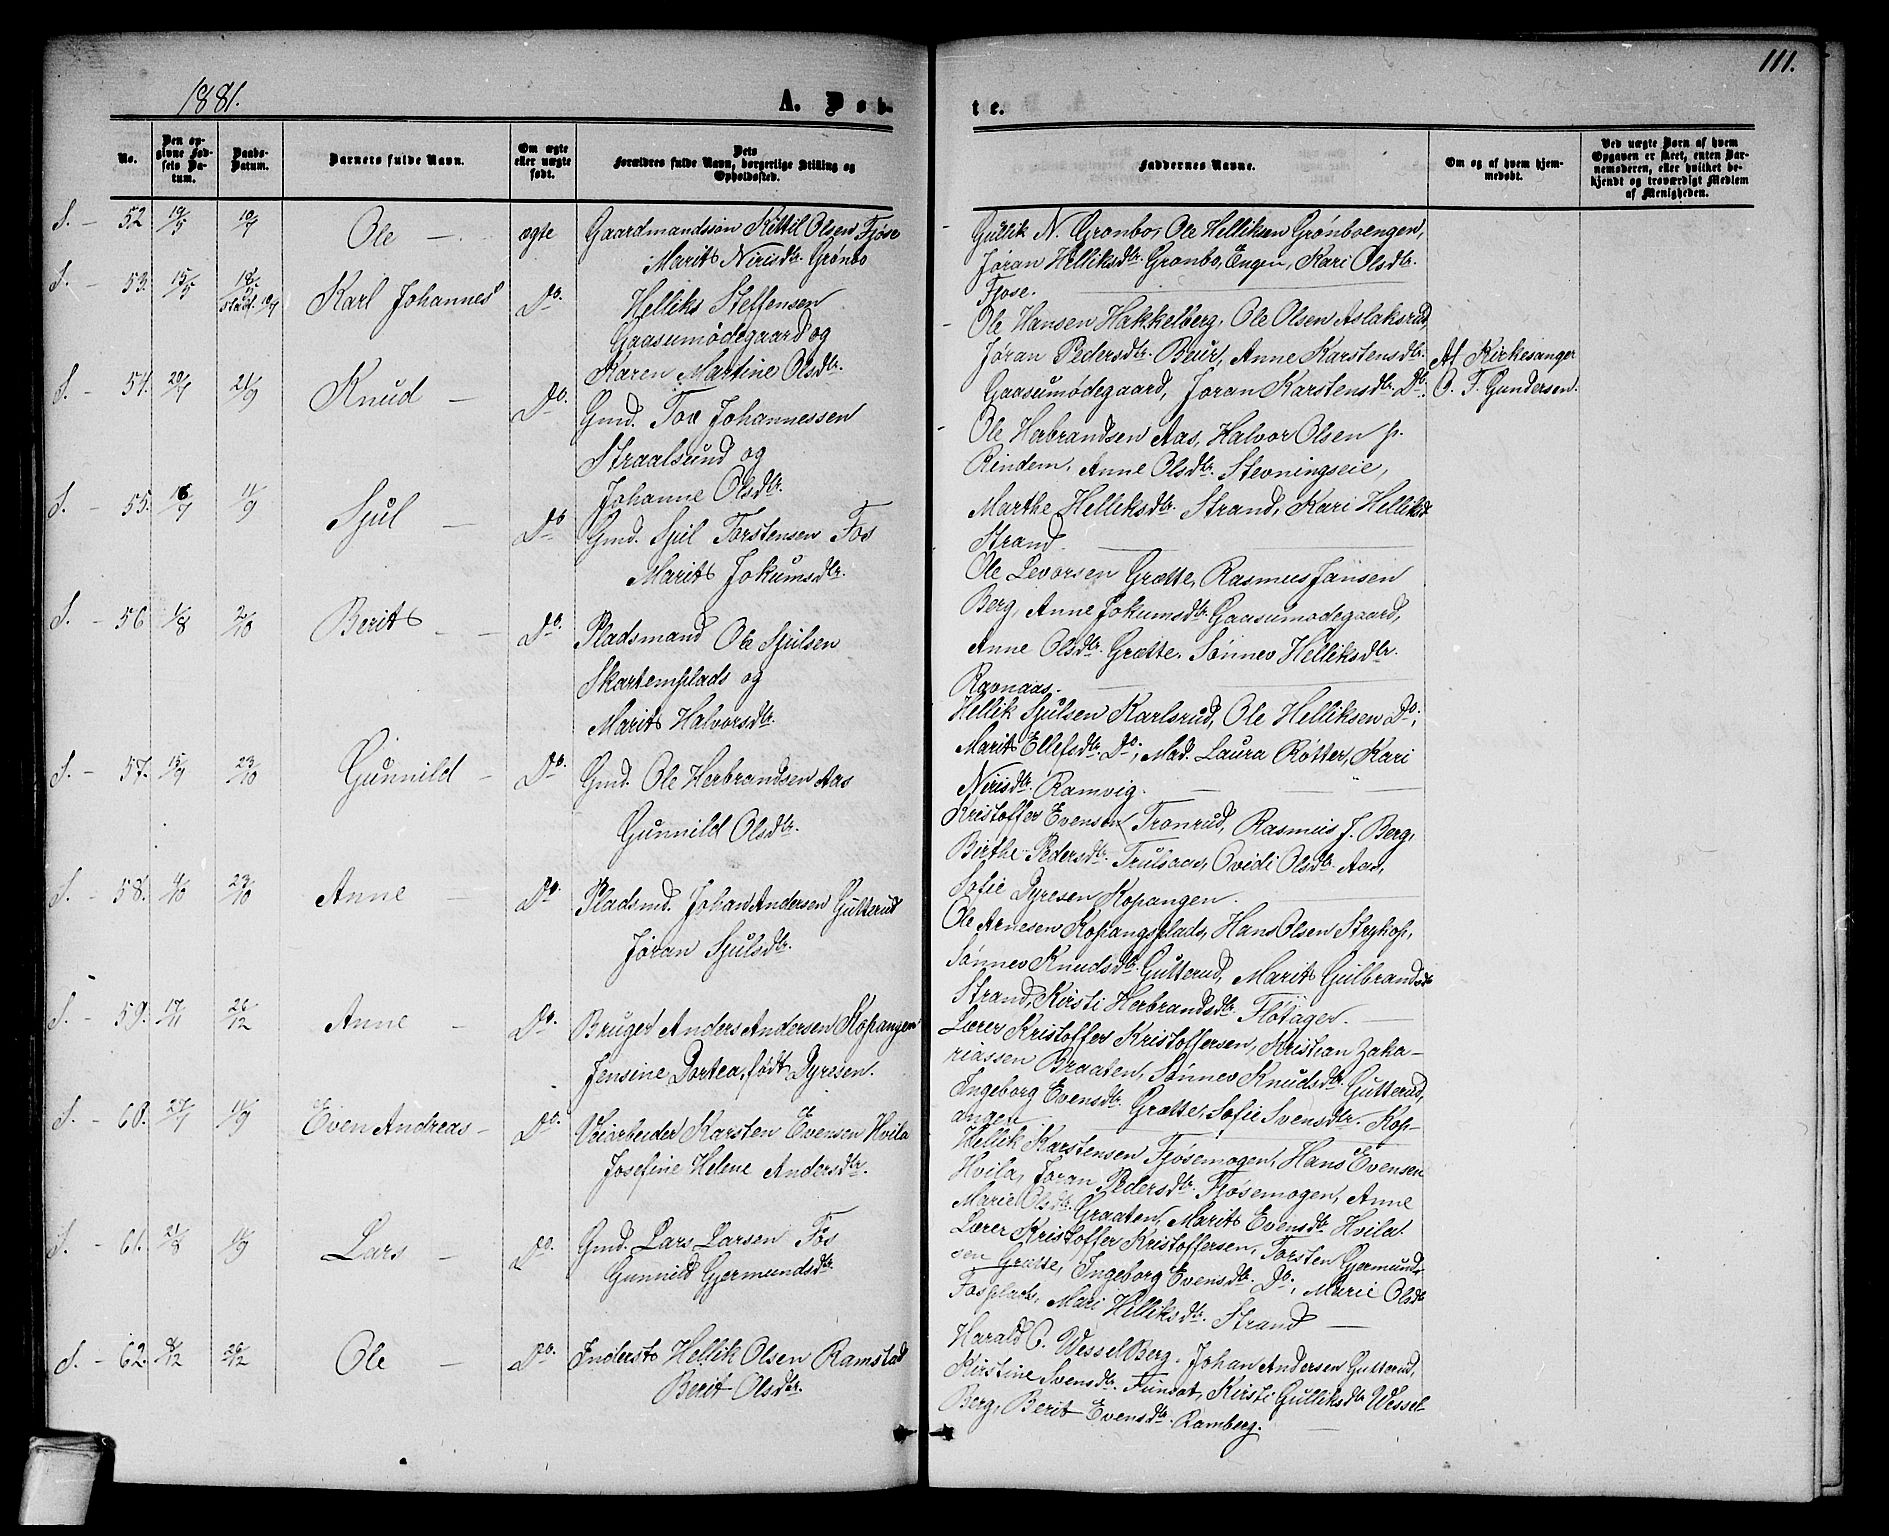 1881.
A. Døb-
te.
111.
No.
Den op-
givne Fød-
sels Da-
tum.
Daabs-
Datum.
Barnets fulde Navn.
Om ægte
eller uægte
født.
Dets
Forældres fulde Navn, borgerlige Stilling og
Opholdssted.
Faddernes Navne.
Om og af hvem hjem-
medøbt.
Ved uægte Børn af hvem
Opgaven er skeet, enten Bar-
nemoderen, eller hvilket be-
kjendt og troværdigt Medlem
af Menigheden.
S. - 52 19/5 10/7 Ole - ægte Gaardmandssøn Kittil Olsen Fjøse
Marit Nirisdtr. Grønbo
Gullik N. Grønbo, Ole Helliksen Grønboengen,
Jøran Helliksdtr. Grønbo, Engen, Kari Olsdtr.
Fjøse.
S. - 53. 15/5 Stadf. 10/7 Karl Johannes Do. Helliks Steffensen
Gaasumødegaard og
Karen Martine Olsdtr.
Ole Hansen Hakkelberg, Ole Olsen Aslaksrud,
Jøran Pedersdtr. Beur, Anne Karstensdtr.
Gaasumødegaard, Jøran Karstensdtr. Do.
Af Kirkesanger
O. F. Gundersen.
S. - 54. 20/7 21/9 Knud - Do. Gmd. Tov Johannessen
Straalsund og
Johanne Olsdtr.
Ole Herbrandsen Aas, Halvor Olsen p.
Rindem, Anne Olsdtr. Stevningseie,
Marthe Helliksdtr. Strand, Kari Helliksd
Strand.
S. - 55. 16/7 11/9 Sjul - Do Gmd. Sjul Torstensen Fos
Marit Jokumsdtr.
Ole Levorsen Grætte, Rasmus Jansen
Berg, Anne Jokumsdtr. Gaasumødegaard,
Anne Olsdtr. Grætte, Sønnev Helliksdtr.
Ravnaas.
S. - 56 1/8 2/10 Berit - Do. Pladsmand Ole Sjulsen
Skartemplads og
Marit Halvorsdtr.
Hellik Sjulsen Karlsrud, Ole Helliksen Do,
Marit Ellefsdtr. Do, Mad. Laura Røtter, Kari
Nirisdtr. Ramvig.
S. - 57. 15/9 23/10 Gunnild - Do. Gmd. Ole Herbrandsen Aas
Gunnild Olsdtr.
Kristoffer Evensen Tronrud, Rasmus J. Berg,
Birthe Pedersdtr. Trulsaas, Ovidi Olsdtr. Aas,
Sofie Dyresen Kopangen.
S. - 58. 4/10 23/10 Anne - Do. Pladsmd. Johan Andersen Gutterud
Jøran Sjulsdtr.
Ole Arnesen Kopangsplads, Hans Olsen Strykop,
Sønnev Knudsdtr. Gutterud, Marit Gulbrandsdtr
Strand, Kirsti Herbrandsdtr. Fløtager.
S. - 59. 17/11 26/12 Anne - Do. Bruger Anders Andersen Kopangen
Jensine Dortea, født Dyresen.
Lærer Kristoffer Kristoffersen, Kristian Zaka-
riassen Braaten, Sønnev Knudsdtr. Gutterud,
Ingeborg Evensdtr. Grætte, Sofie Svensdtr. Kop-
angen
S. - 60. 27/7 11/9 Even Andreas - Do. Veiarbeider Karsten Evensen Hvila
Josefine Helene Andersdtr.
Hellik Karstensen Fjøsemogen, Hans Evensen
Hvila, Jøran Pedersdtr. Fjøsemogen, Anne
Marie Olsdtr. Graaten, Marit Evensdtr. Hvila.
S. - 61. 21/8 11/9 Lars - Do. Gmd. Lars Larsen Fos
Gunnild Gjermundsdtr.
Lærer Kristoffer Kristoffersen, Torsten Gjermund-
sen Grætte, Ingeborg Evensdtr. Do, Marie Olsdtr
Fosplads, Mari Helliksdtr. Strand
S. - 62. 8/12 26/12 Ole - Do. Inderst Hellik Olsen Ramstad
Berit Olsdtr.
Harald O. Wessel Berg, Johan Andersen Gutterud,
Kirstine Svensdtr. Funsat, Kirsti Gulliksdtr Wessel-
Berg, Berit Evensdtr. Ramberg.